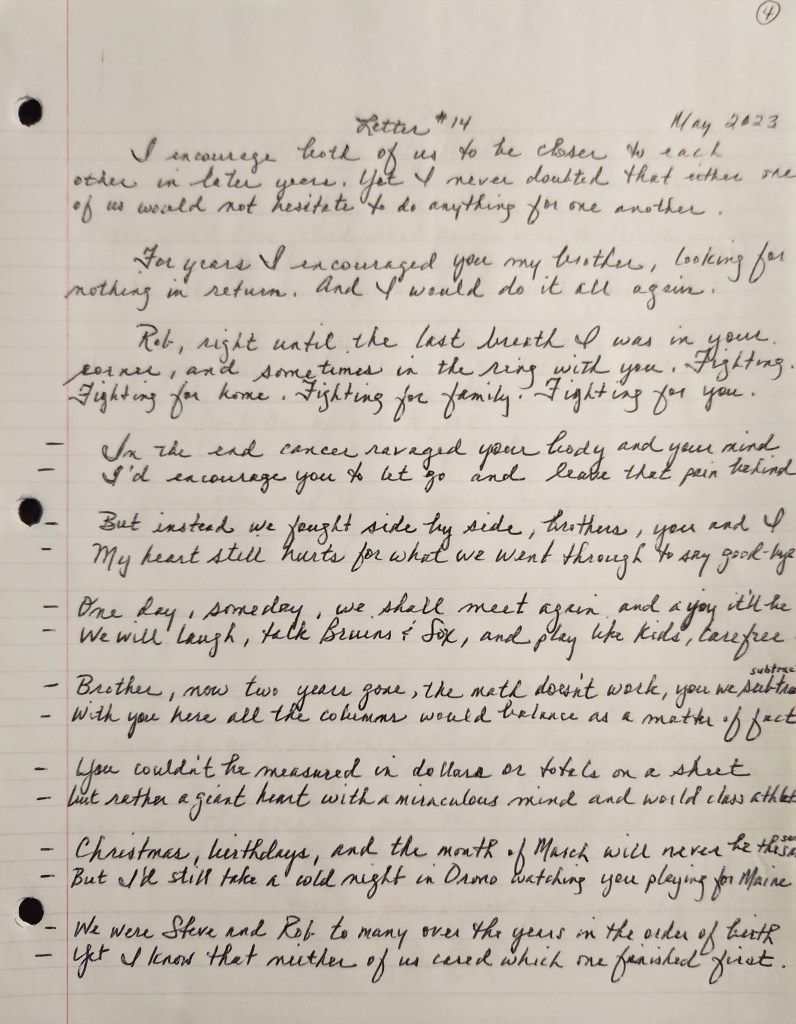 4
Letter #14 May 2023
I encourage both of us to be closer to each
other in later years. Yet I never doubted that either one
of us would not hesitate to do anything for one another.
For years I encouraged you my brother, looking for
nothing in return. And I would do it all again.
Rob, right until the last breath I was in your
corner, and sometimes in the ring with you. Fighting.
Fighting for home. Fighting for family. Fighting for you.
- In the end cancer ravaged your body and your mind
- I'd encourage you to let go and leave that pain behind
- But instead we fought side by side, brothers, you and I
- My heart still hurts for what we went through to say good-bye
- One day, someday, we shall meet again and a joy it'll be
- We will laugh, talk Bruins & Sox, and play like kids, carefree
subtrac
- Brother, now two years gone, the math doesn't work, you we subtra
- With you here all the columns would balance as a matter of fact
- You couldn't be measured in dollars or totals on a sheet
- but rather a giant heart with a miraculous mind and world class athlet
- Christmas, birthdays, and the month of March will never be the sa
- But I'd still take a cold night in Orono watching you playing for Maine
- We were Steve and Rob to many over the years in the order of birth
- Yet I know that neither of us cared which one finished first.